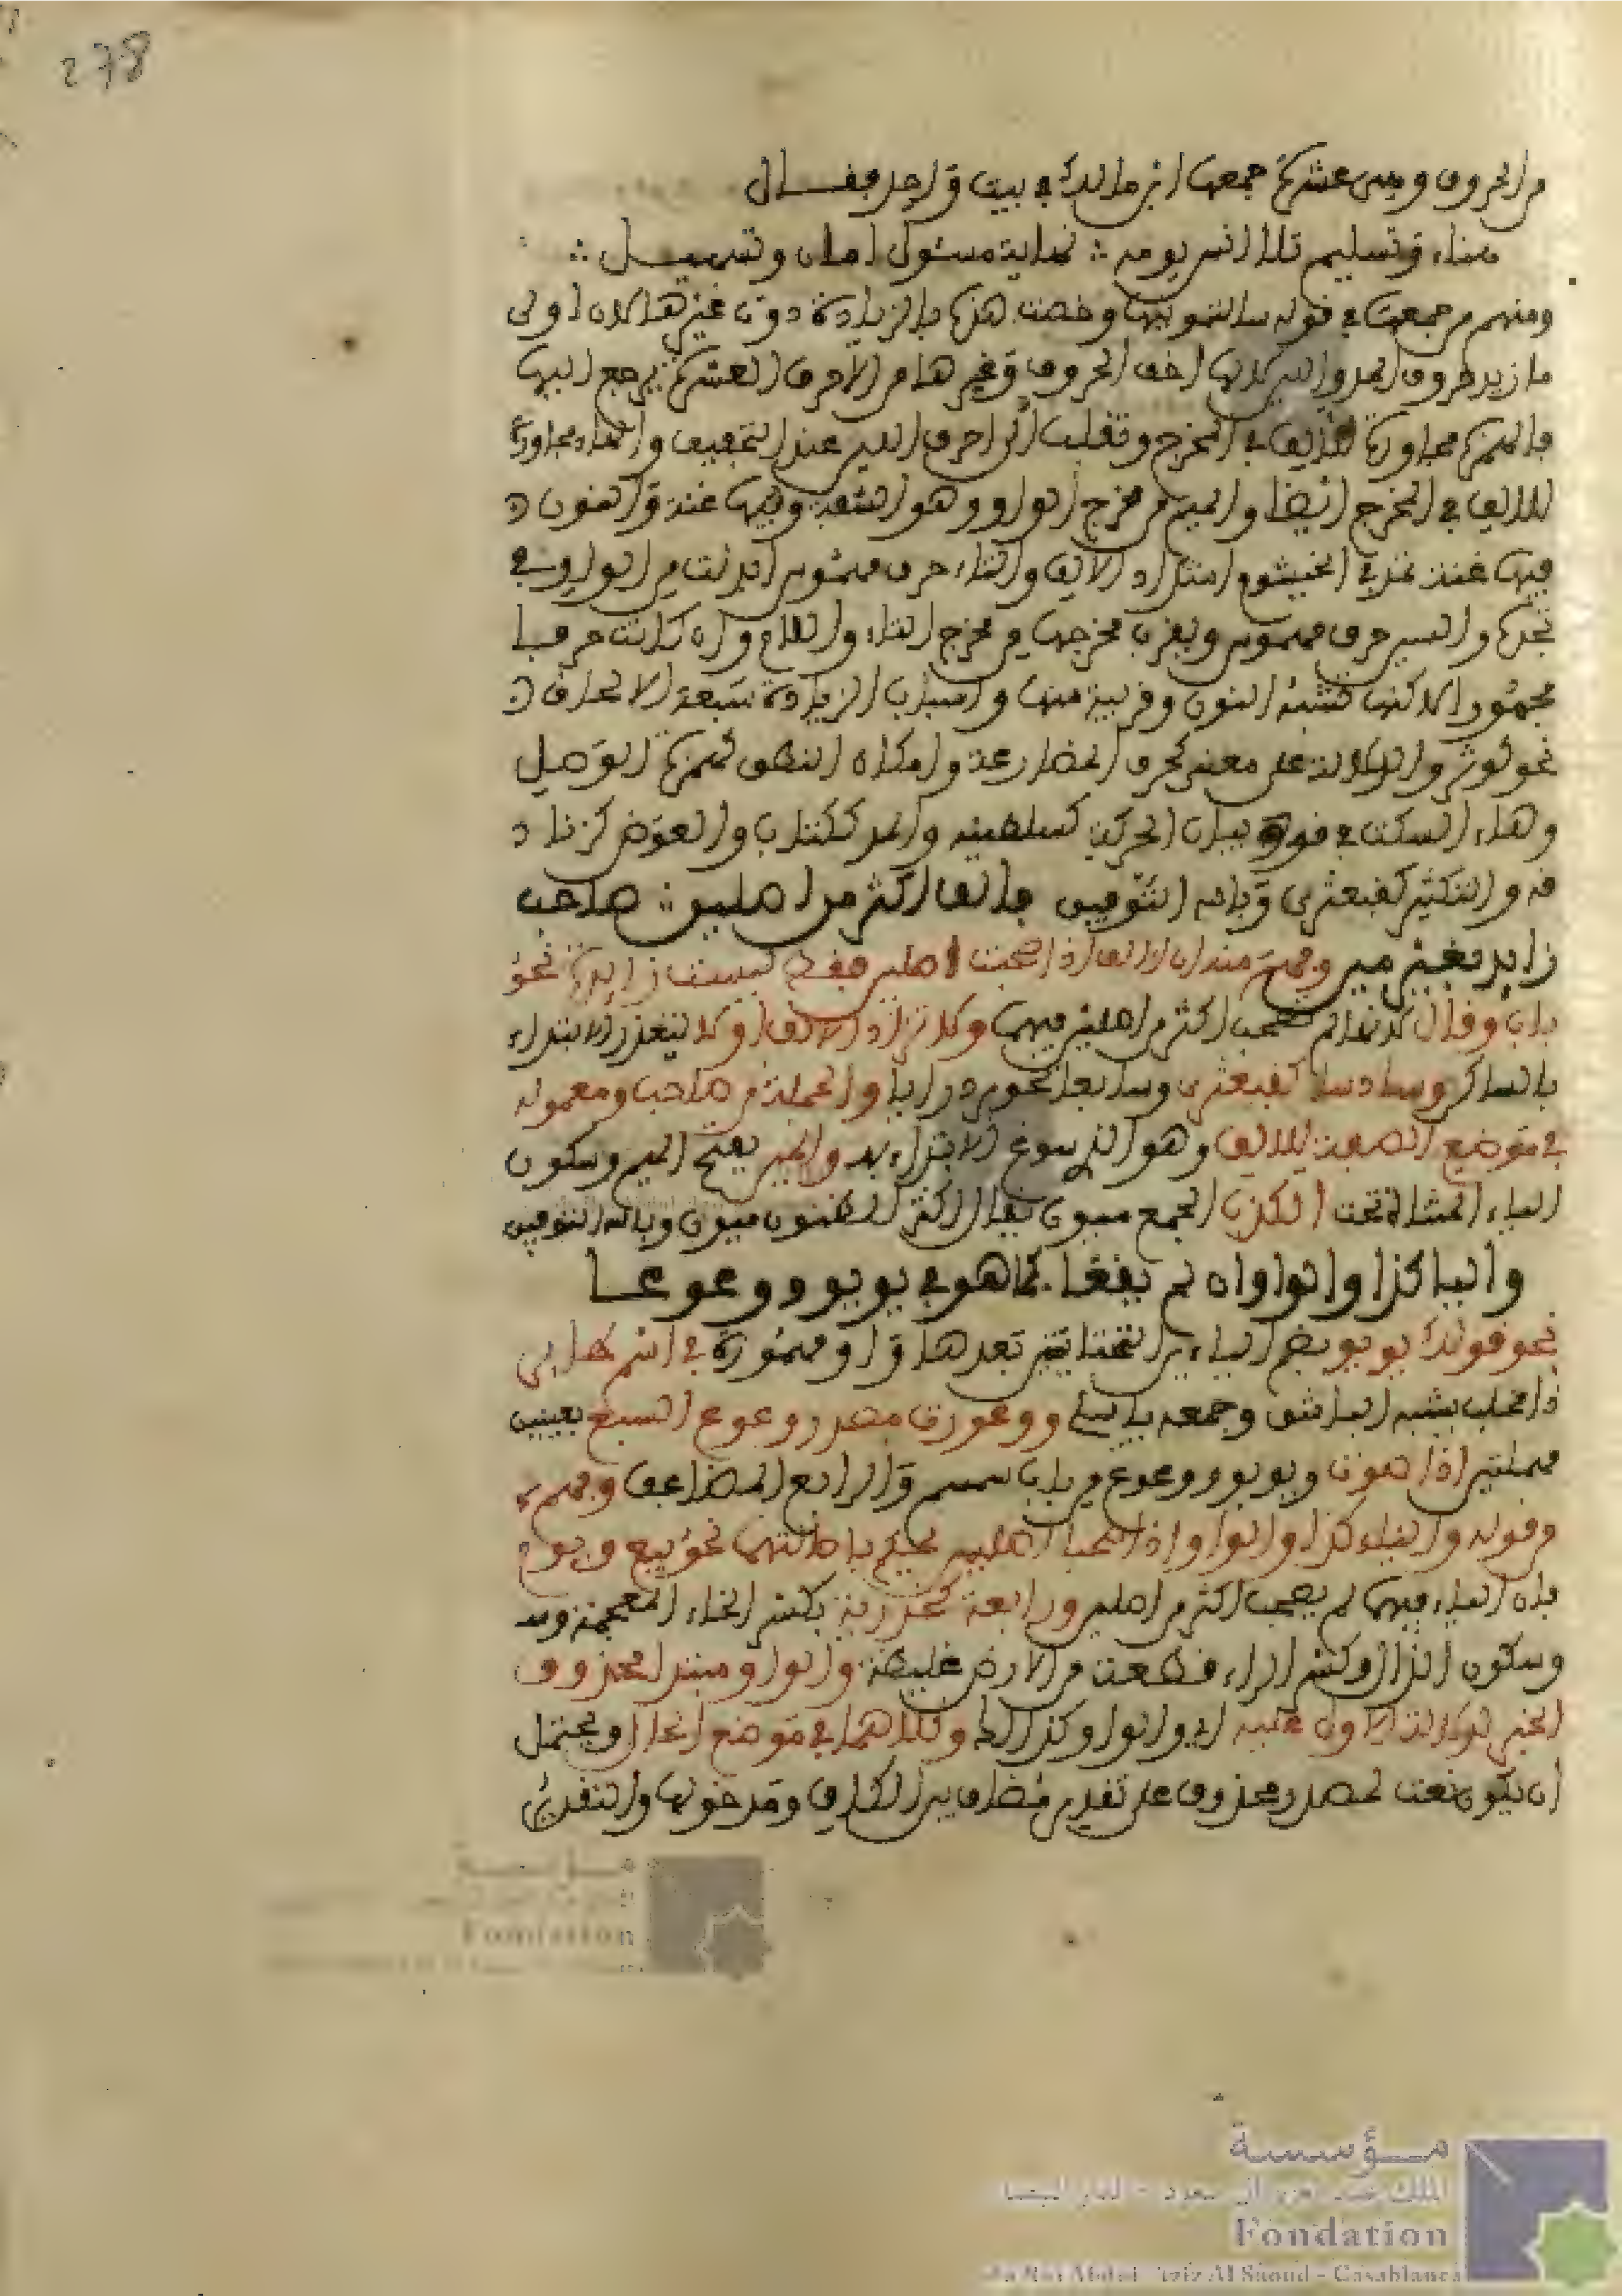 278
من الحروف وهي عشرة جمعها ابن مالك في بيت واحد فقال
هناء وتسليم تلا انس يومه ∴ نهاية مسئول امان وتسهيل ∴
ومنهم من جمعها في قوله سالتمونيها وخصت هذه بالزيادة دون غيرها لان اولى
ما زيد حروف المد واللين لانها اخف الحروف وغيرها من الاحرف العشرة يرجع اليها
فالهمزة مجاورة للالف في المخرج وتقلب الى احرف اللين عند التخفيف والهاء مجاورة
للالف في المخرج ايضا والميم من مخرج الواو وهو الشفة وفيها غنة والنون
فيها غنة تمتد في الخيشوم امتداد الالف والتاء حرف مهموس ابدلت من الواو في
تجاه والسين حرف مهموس ويقرب مخرجها من مخرج التاء واللام وان كانت حرفا
مجهورا لاكنها تشبه النون وقريبة منها واسباب الزيادة سبعة الالحاق
نحو كوثر والدلالة على معنى كحرف المضارعة وامكان النطق كهمزة الوصل
وهاء السكت في قه وبيان الحركة كسلطنيه والمد ككتاب والعوض كزناد
قه والتكثير كقبعثرى وبالله التوفيق فالف اكثر من اصلين ∴ صاحب
زايد بغير مين وفهم منه ان الالف اذا صحبت اصلين فقط ليست زايدة نحو
باب وقال لانها لم تصحب اكثر من اصلين فيهما ولا تزاد الالف اولا لتعذر الابتداء
بالساكن وسادسا كقبعثرى وسابعا نحو بردرايا والجملة من صاحب ومعموله
في موضع الصفة للالف وهو الذي سوغ الابتداء به والمين بفتح الميم وسكون
الياء المثناة تحت الكذب الجمع ميون يقال اكثر الظنون ميون وبالله التوفيق
واليا كذا والواو ان لم يقعا كما هو في يويو ووعوعا
نحو قولك يويو بضم الياءين التحتانيتين بعدها واو مهموزة في اسم طاير
ذا مخلب يشبه الباشق وجمعه يايئ ووعوعت مصدر وعوع السبع بعينين
مهملتين اذا صوت ويويو ووعوع من باب سمسم والرابع المضاعف وفهم
من قوله والياء كذا والواو اذا صحبا اصلين تحكم باصالتهما نحو بيع ويوم
فان الياء فيهما لم يصحب اكثر من اصلين ورابعة كحذرية بكسر الحاء المهملة
وسكون الذال وكسر الراء قطعة من الارض غليظة والواو مبتدا محذوف
الخبر لدلالة الاول عليه اي والواو كذلك وكلاهما في موضع الحال ويحتمل
ان يكون نعت لمصدر محذوف على تقدير مضاف بين الكاف ومدخولها والتقدير
مؤسسة
Fondation
مؤسسة
الملك عبد العزيز آل سعود - الدار البيضاء
Fondation
du Roi Abdul-Aziz Al Saoud - Casablanca